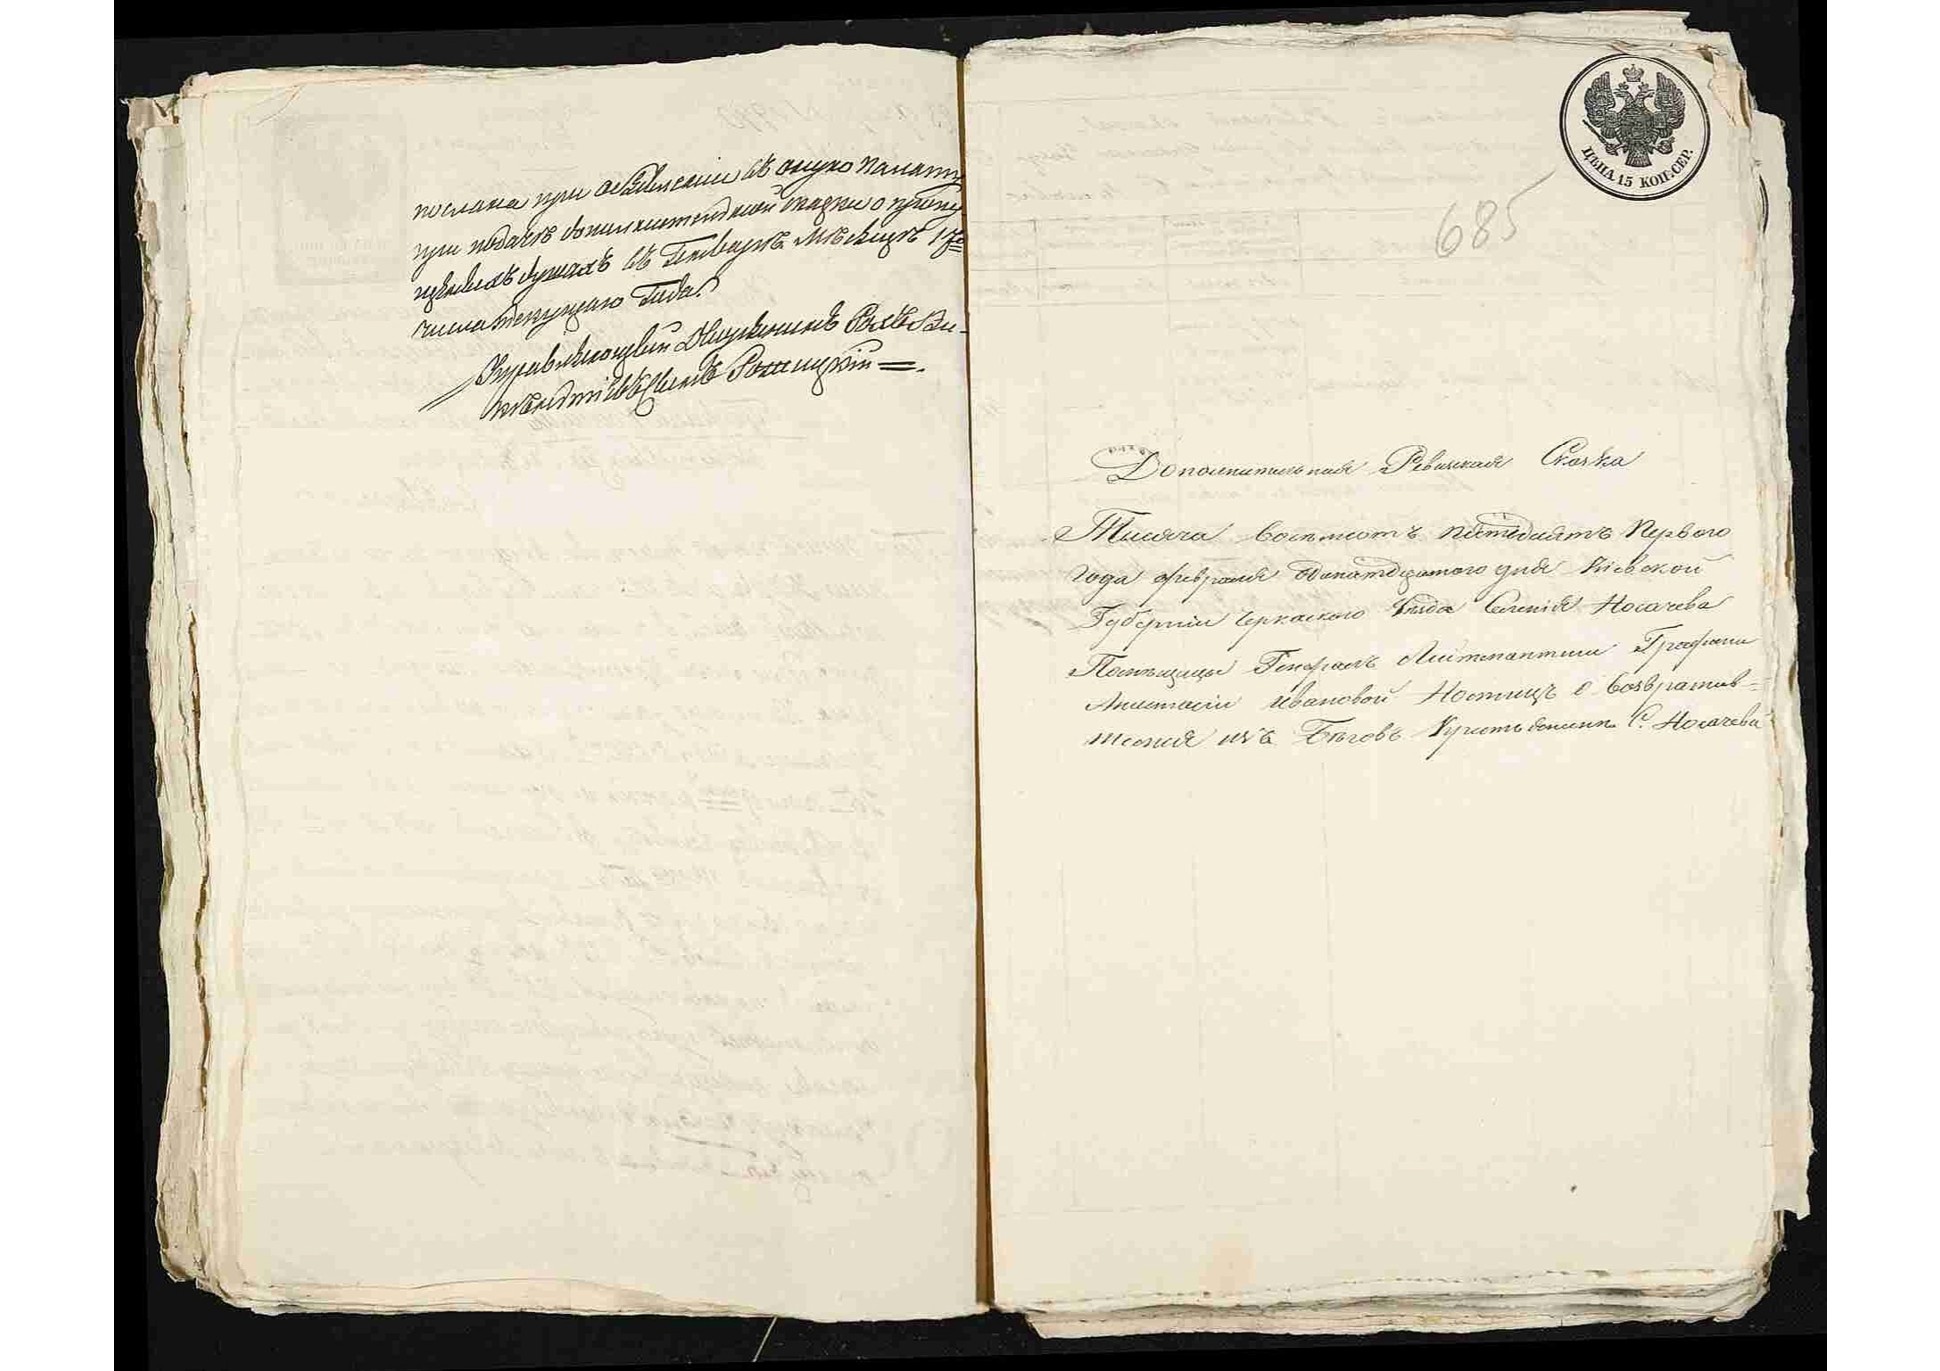 послана при объявлении въ оную палату
при подачѣ дополнительной сказки о пропу
щенныхъ душахъ въ Генварѣ Мѣсяцѣ 17го
числа текущаго Года.
Управляющій Дворянинъ
Рощицкій
ЦѢНА 15 КОП. СЕР.
685
Дополнительная Ревизская Сказка
Тысяча восемьсотъ пятдесятъ Первого
года февраля одинатцатого дня Кіевской
Губерніи Черкаского уезда Селенія Носачева
Помѣщицы Генералъ Лейтенантши Графини
Анастасіи Ивановой Ностицъ о возвратив-
шемся изъ Бѣговъ Крестьянине С. Носачева